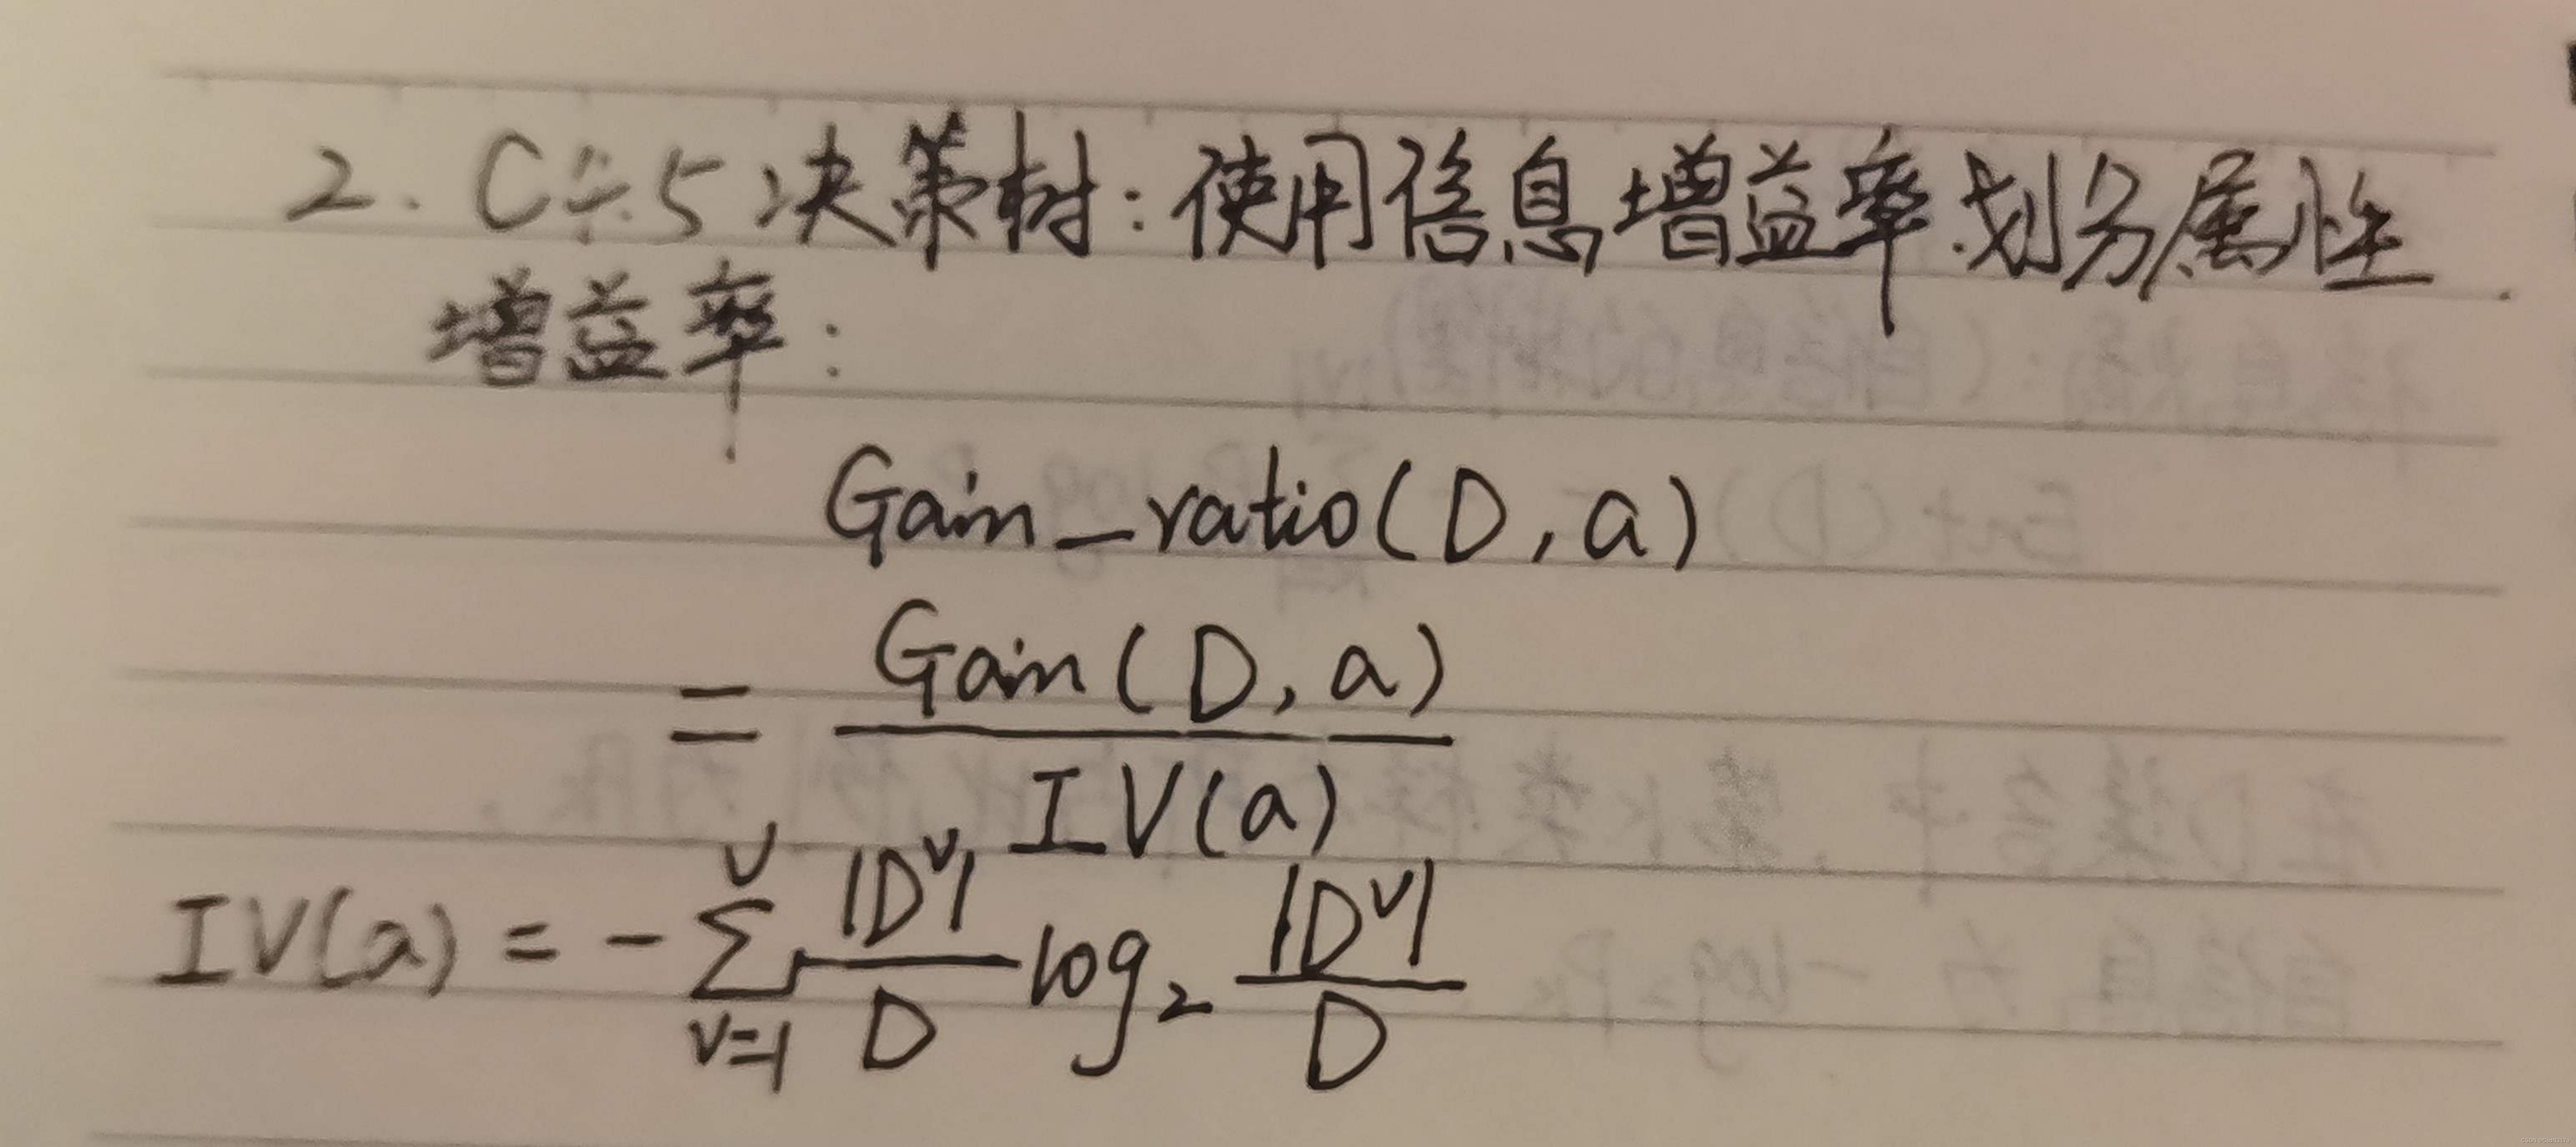 2. C4.5决策树：使用信息增益率划分属性.
增益率：
Gain_ratio(D,a)
= Gain(D,a) / IV(a)
IV(a) = -∑_{v=1}^{V} |D^v|/D log₂ |D^v|/D